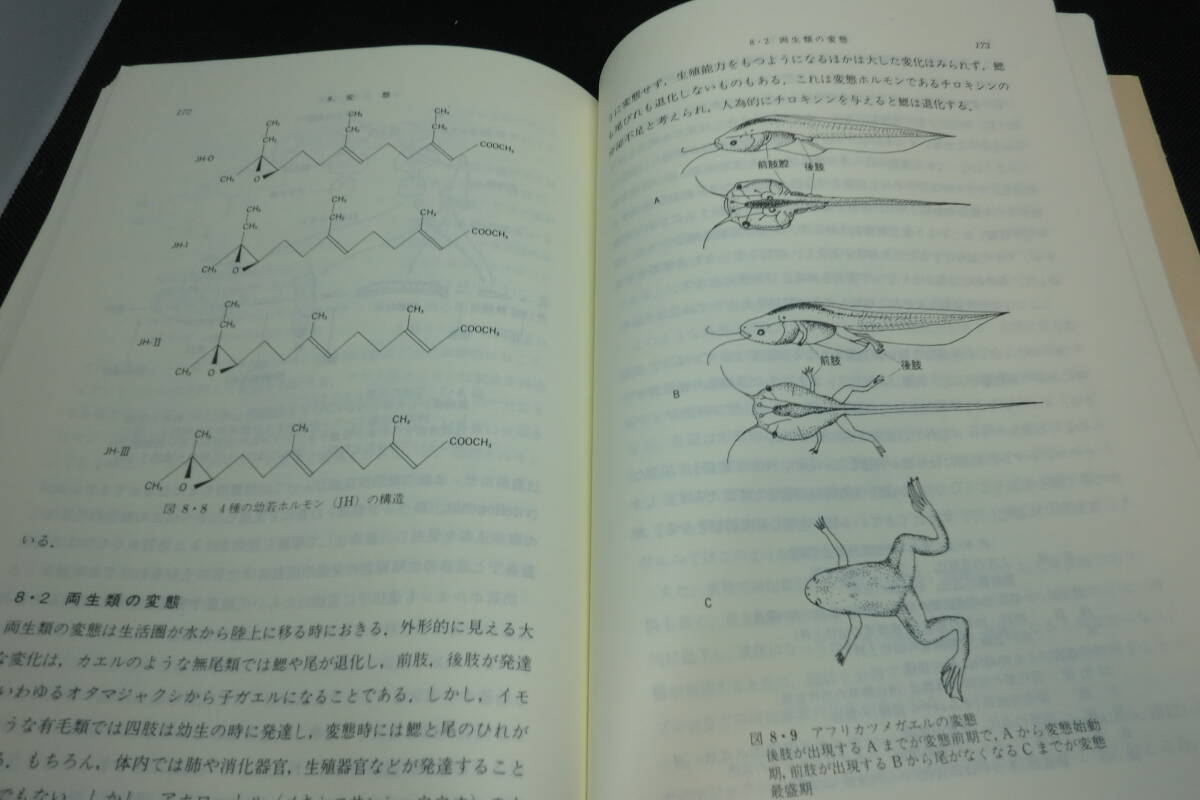 172
8. 変 態
CH₃
CH₃
CH₃
CH₂
CH₂
CH₂
JH-0
COOCH₃
CH₃
O
CH₃
CH₃
CH₂
CH₂
CH₃
JH-I
COOCH₃
CH₃
O
CH₃
CH₂
CH₃
CH₃
JH-II
COOCH₃
CH₃
O
CH₃
CH₃
CH₃
JH-III
COOCH₃
CH₃
O
図 8・8 4種の幼若ホルモン (JH) の構造
いる.
8・2 両生類の変態
両生類の変態は生活圏が水から陸上に移る時におきる. 外形的に見える大
な変化は, カエルのような無尾類では鰓や尾が退化し, 前肢, 後肢が発達
いわゆるオタマジャクシから子ガエルになることである. しかし, イモ
うな有毛類では四肢は幼生の時に発達し, 変態時には鰓と尾のひれが
る. もちろん, 体内では肺や消化器官, 生殖器官などが発達すること
でもない. しかし
8・2 両生類の変態
173
に変態せず, 生殖能力をもつようになるほかは大した変化はみられず, 鰓
も尾びれも退化しないものもある. これは変態ホルモンであるチロキシンの
不足と考えられ, 人為的にチロキシンを与えると鰓は退化する.
前肢腔 後肢
A
前肢 後肢
B
C
図 8・9 アフリカツメガエルの変態
後肢が出現する A までが変態前期で, A から変態始動
期, 前肢が出現する B から尾がなくなる C までが変態
最盛期